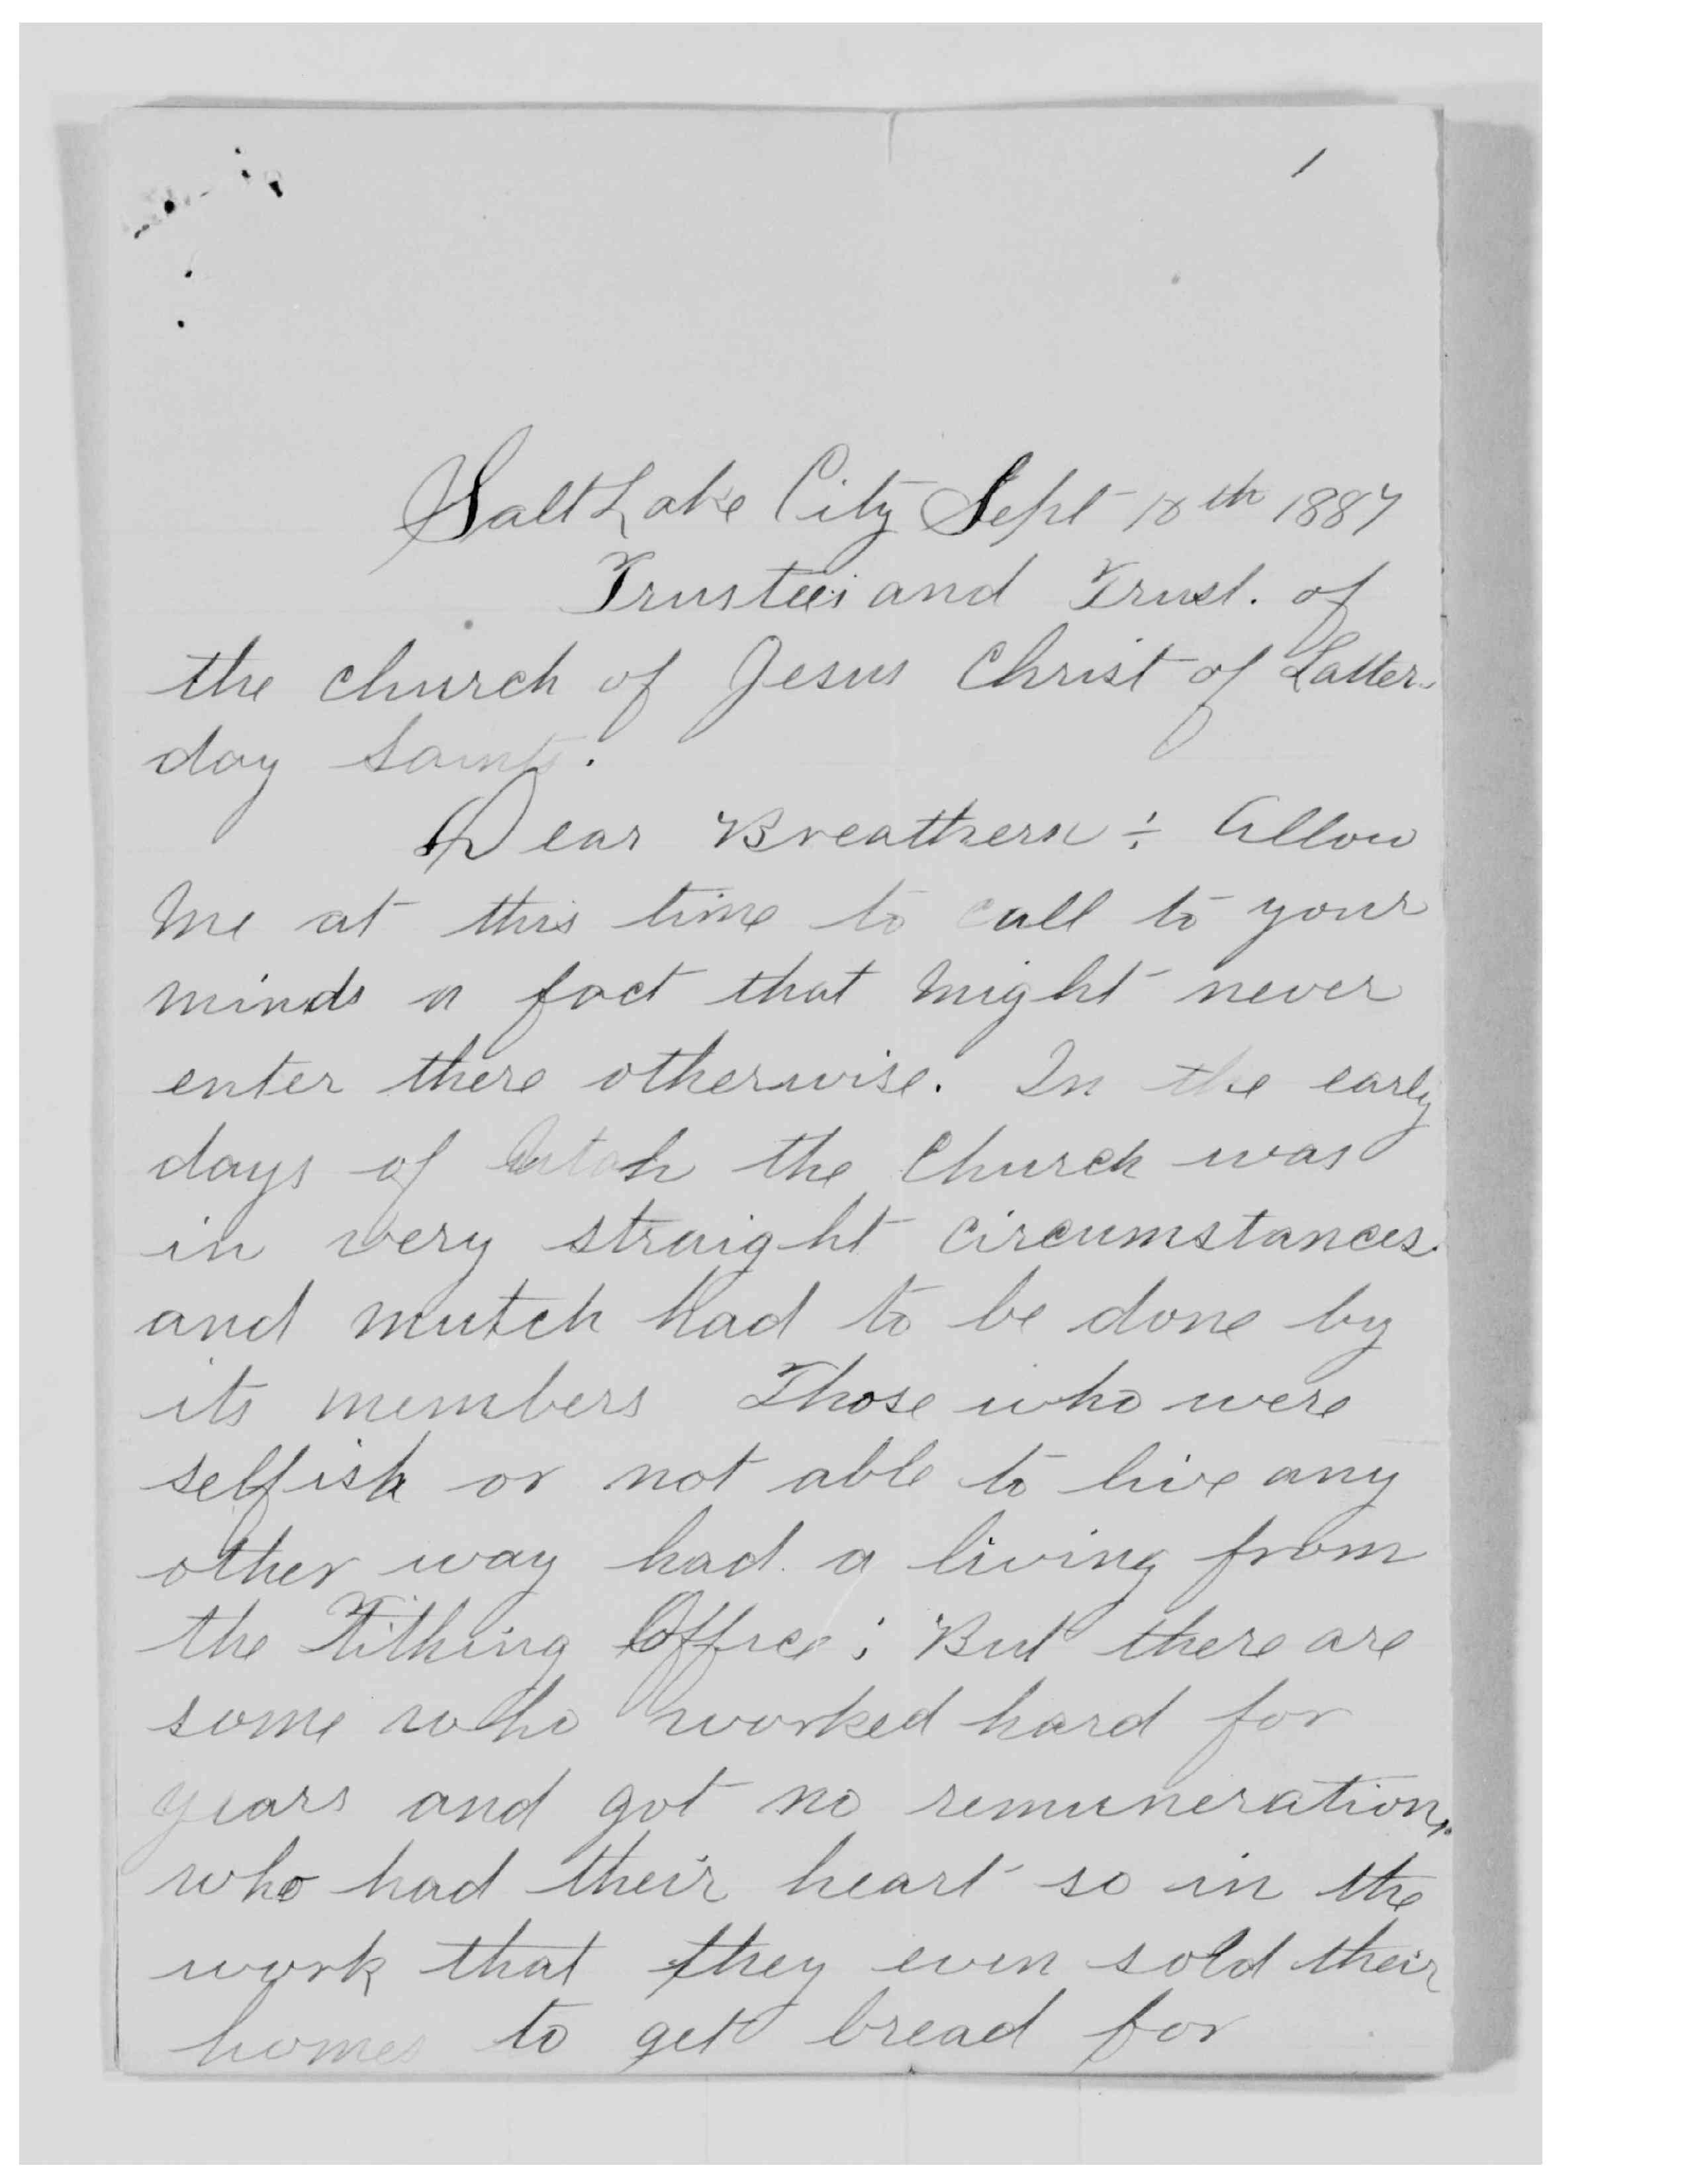 1
Salt Lake City Sept 18th 1887
Trustees and Trust. of
the church of Jesus Christ of Latter-
day Saints.
Dear Breathern ÷ Allow
Me at this time to call to your
minds a fact that might never
enter there otherwise. In the early
days of Utah the Church was
in very straight circumstances.
and mutch had to be done by
its members Those who were
selfish or not able to live any
other way had a living from
the Tithing Office; But there are
some who worked hard for
years and got no remuneration,
who had their heart so in the
work that they even sold their
homes to get bread for